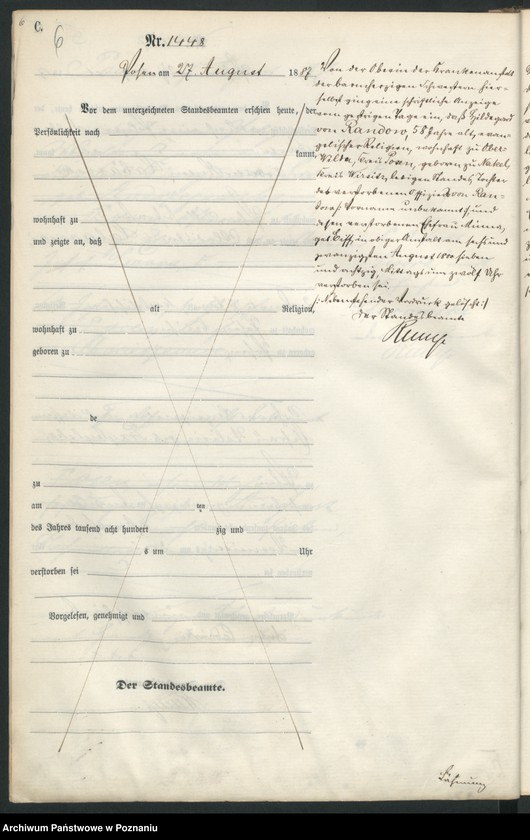 C.
6
Nr. 1448
Posen am 27 August 1887
Vor dem unterzeichneten Standesbeamten erschien heute, der
Persönlichkeit nach
kannt,
wohnhaft zu
und zeigte an, daß
alt Religion,
wohnhaft zu
geboren zu
de
zu
am ten
des Jahres tausend acht hundert zig und
s um Uhr
verstorben sei
Vorgelesen, genehmigt und
Der Standesbeamte.
Von der Oberin der Krankenanstalt
der barmherzigen Schwestern hier-
selbst ging eine schriftliche Anzeige
vom gestrigen Tage ein, daß Hildegard
von Randow, 58 Jahre alt, evan-
gelischer Religion, wohnhaft zu Ober-
Wilda, Kreis Posen, geboren zu Nakel,
Kreis Wirsitz, ledigen Standes, Tochter
des verstorbenen Offiziers von Ran-
dow, Vorname unbekannt, und
dessen verstorbenen Ehefrau Minna,
geb. in obiger Anstalt am sechs und
zwanzigsten August 1800 sieben
und achtzig, Mittags um zwölf Uhr
verstorben sei.
/: Nebenstehender Vordruck gelöscht :/
Der Standesbeamte
Archiwum Państwowe w Poznaniu